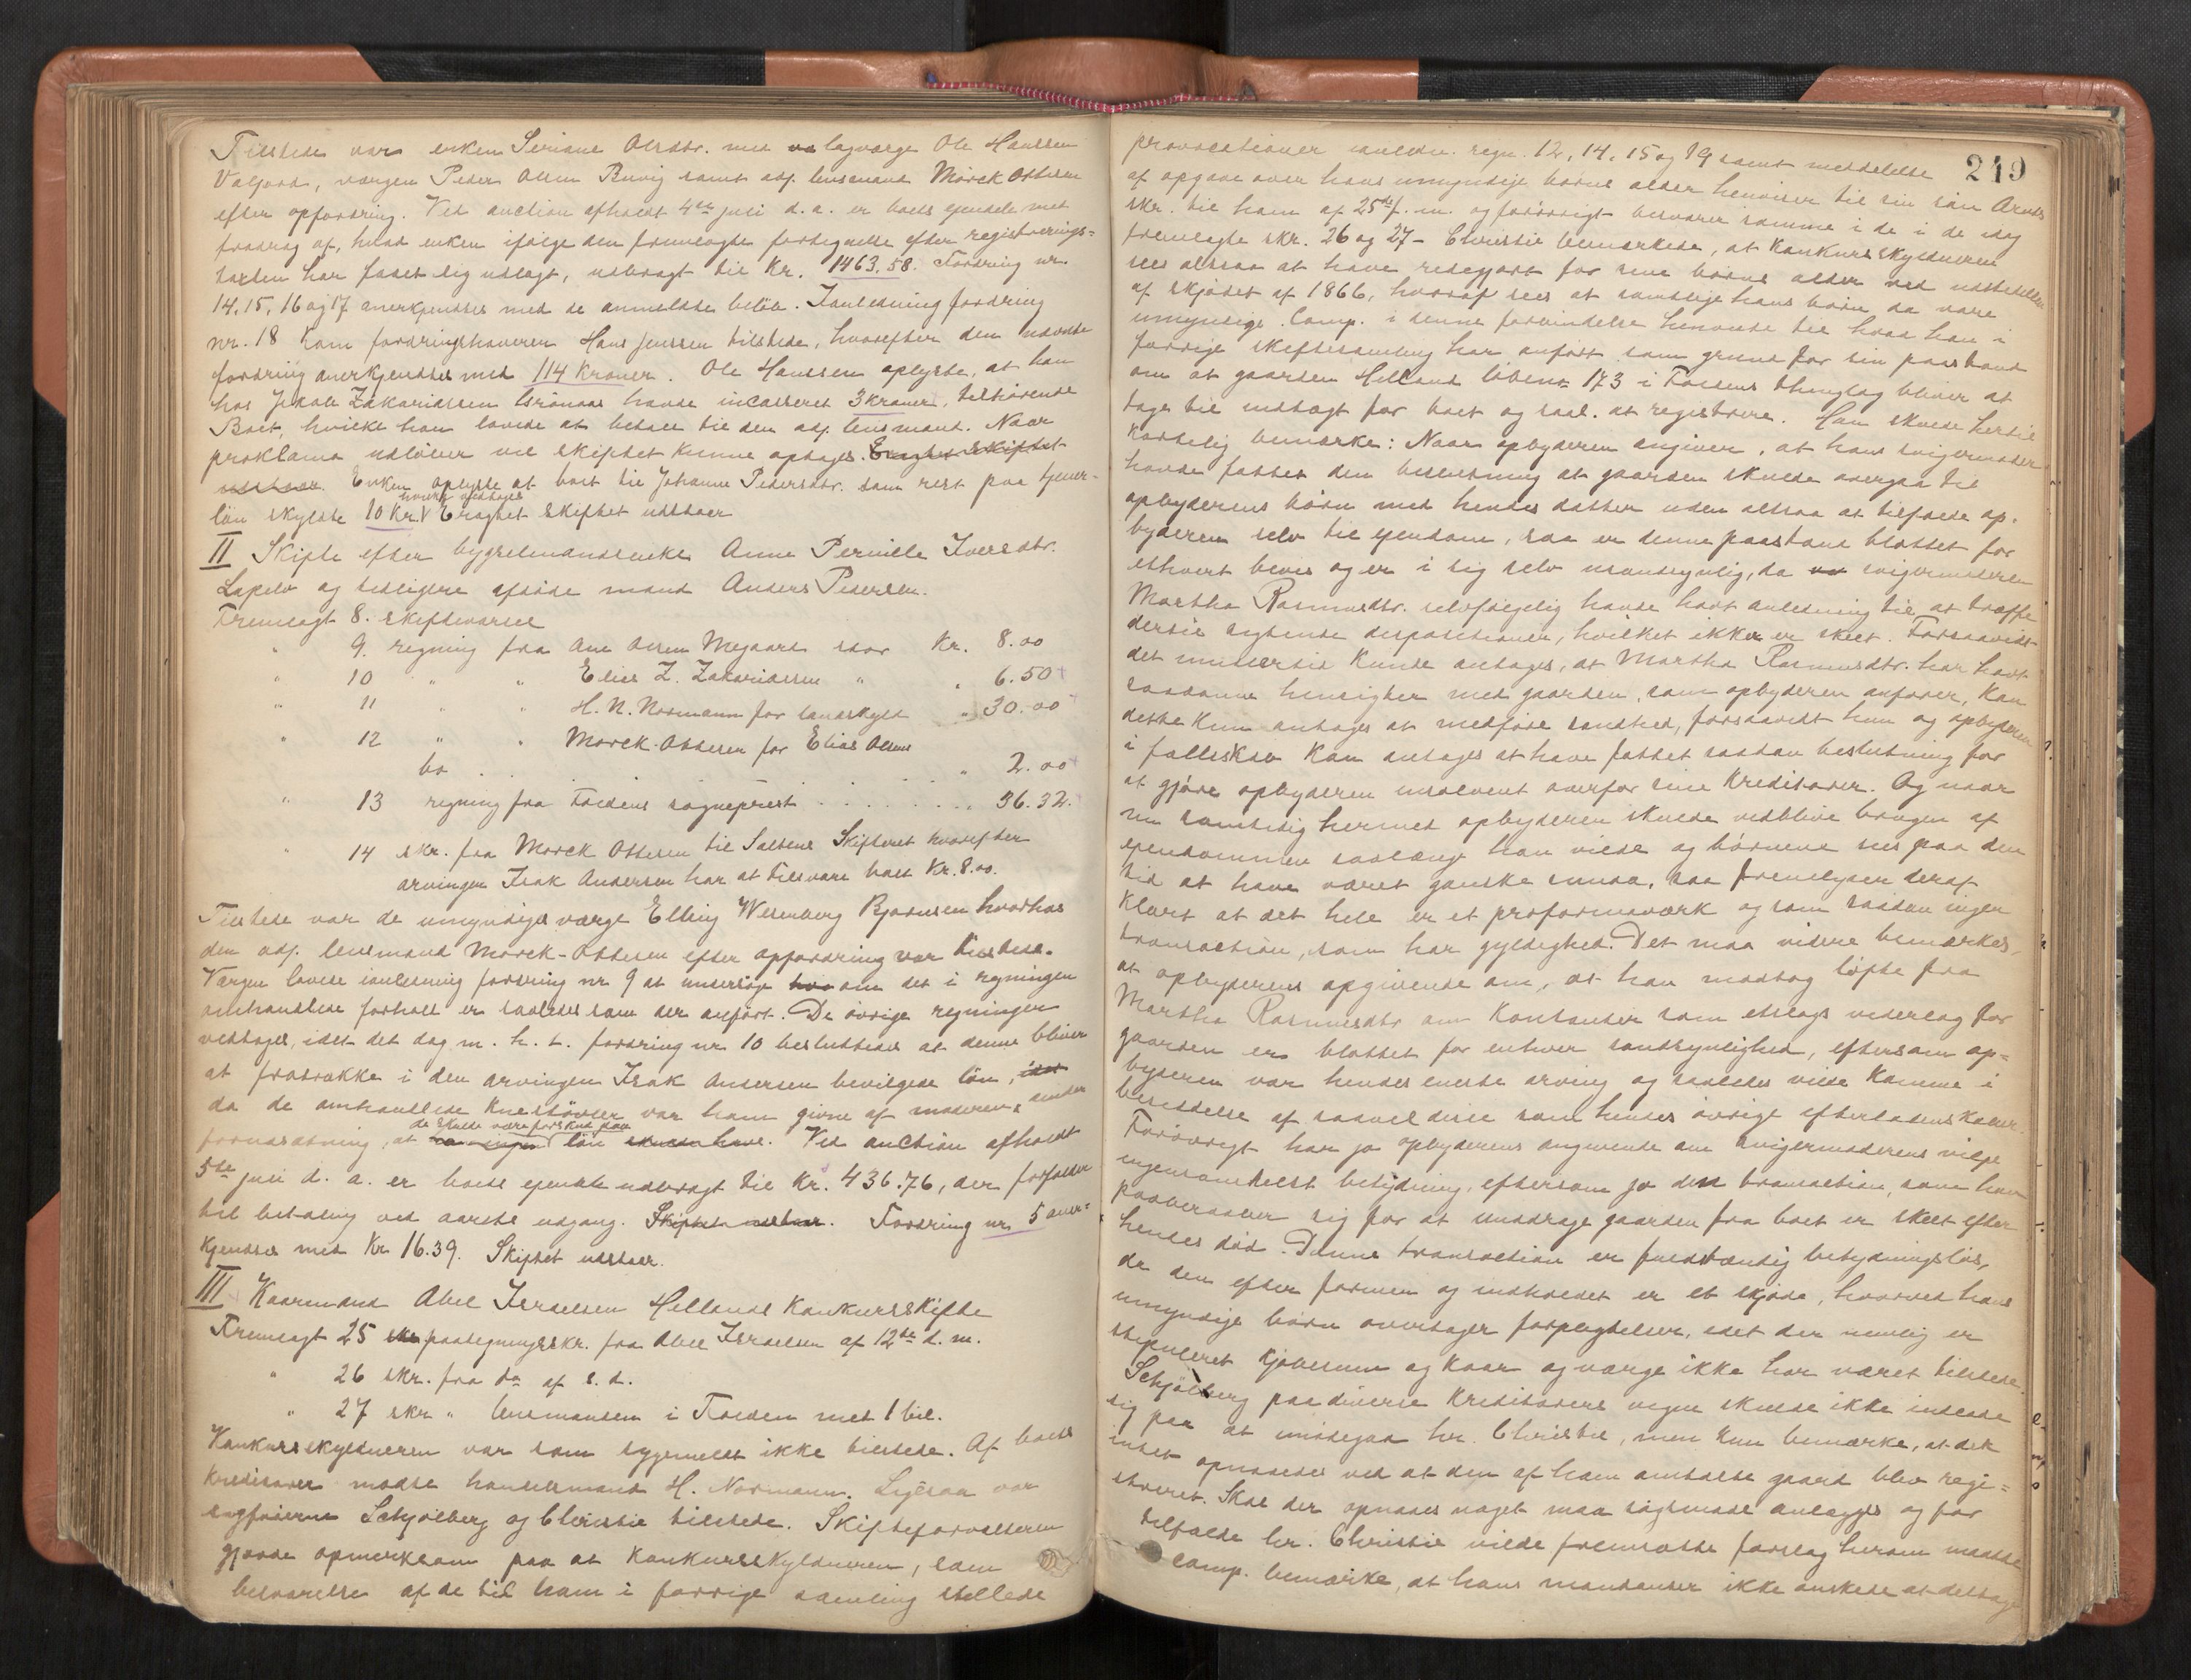 Tilstede var enken Seriane Olsdtr. med lagværge Ole Hanssen
Valjord, værgen Peder Olsen Buvig samt adj. lensmand Mörck Ottesen
efter opfordring. Ved auction afholdt 4de juli d. a. er boets eiendele med
fradrag af, hvad enken ifölge den fremlagte fortegnelse efter registrerings-
taxten har faaet sig udlagt, udbragt til Kr. 1463.58. Fordring nr.
14, 15, 16 og 17 anerkjendtes med de anmeldte beløb. Ianledning fordring
nr. 18 kom fordringshaveren Hans Jenssen tilstede, hvorefter den
fordring anerkjendtes med 114 Kroner. Ole Hanssen oplyste, at han
hos Jakob Zakariassen Grönaas havde incasseret 3 kroner, tilhörende
Boet, hvilke han lovede at betale til den adj. lensmand. Naar
proklama udlöber vil skiftet kunne optages. Eragtet Skiftet
udstaar. Enken oplyste at boet til Johanne Pedersdtr. som rest paa tjener-
hvilke vedtages
lön skyldte 10 Kr. Eragtet Skiftet udstaar
II Skifte efter bygselmandsenke Anne Pernille Iversdtr.
Lapelv og tidligere afdöde mand Anders Pedersen.
Fremlagt 8. skiftevarsel
" 9. regning fra Ane Olsen Megaard stor Kr. 8.00
" 10 " " Elias Z. Zakariassen " " 6.50
" 11 " " H. N. Normann for landskyld " 30.00
" 12 " " Mörck-Ottesen for Elias Olsens
bo . . . " 2.00
" 13 regning fra Foldens sogneprest . . . . . . . 36.32.
" 14 skr. fra Mörck Ottesen til Saltens Skifteret hvorefter
arvingen Isak Andersen har at tilsvare boet Kr. 8.00.
Tilstede var de umyndiges værge Elling Wesenberg Bjørnsen hvorhos
den adj. lensmand Mörck-Ottesen efter opfordring var tilstede.
Værgen lovede ianledning fordring nr 9 at undersöge om det i regningen
omhandlede forhold er saaledes som der anført. De övrige regninger
vedtages, idet det dog m. h. t. fordring nr 10 besluttedes at denne bliver
at fratrække i den arvingen Isak Andersen bevilgede lön, idet
da de omhandlede knestövler var ham givne af moderen, under
de skulde være forskud paa
forudsætning, at lön skulde have. Ved auction afholdt
5te juli d. a. er boets eiendele udbragt til Kr. 436.76, der forfalder
til betaling ved aarets udgang. Skiftet udstaar. Fordring nr. 5 aner-
kjendtes med Kr. 16.39. Skiftet udstaar.
III Kaarmand Abel Israelsen Hellands Konkursskifte
Fremlagt 25 skr paategningsskr. fra Abel Israelsen af 12te d. m.
" 26 skr. fra do af s. d.
" 27 skr " lensmanden i Folden med 1 bil.
Konkursskyldneren var som sygemeldt ikke tilstede. Af boets
Kreditorer mødte handelsmand H. Normann. Ligesaa var
sagförerne Schjölberg og Christie tilstede. Skifteforvalteren
gjorde opmerksom paa at Konkursskyldneren, som
besvarelse af de til ham i forrige samling stillede
249
provocationer ianledn. regn. 12, 14, 15 og 19 samt meddelelse
af opgave over hans umyndige börns alder henviser til sin sön Arnts
skr. til ham af 25de f. m. og forövrigt besvarer samme i de i de idag
fremlagte skr. 26 og 27 – Christie bemærkede, at Konkursskyldneren
sees altsaa at have redegjort for sine börns alder ved udstedelsen
af skjödet af 1866, hvoraf sees at samtlige hans börn da vare
umyndige. Comp. i denne forbindelse henviste til hvad han i
forrige skiftesamling har anfört som grund for sin paastand
om at gaarden Helland löbenr 173 i Foldens thinglag bliver at
tage til indtægt for boet og saal. at registrere. Han skulde hertil
kortelig bemærke: Naar opbyderen angiver, at hans svigermoder
havde fattet den beslutning at gaarden skulde overgaa til
opbyderens börn med hendes datter uden altsaa at tilfalde op-
byderen selv til eiendom, saa er denne paastand blottet for
ethvert bevis og er i sig selv usandsynlig, da svigermoderen
Martha Rasmusdtr. selvfölgelig havde havt anledning til at træffe
dertil sigtende dispositioner, hvilket ikke er skeet. Forsaavidt
det imidlertid kunde antages, at Martha Rasmusdtr. har havt
saadanne hensigter med gaarden, som opbyderen anförer, kan
dette kun antages at medføre sandhed, forsaavidt hun og opbyderen
i fælleskab kan antages at have fattet saadan beslutning for
at gjöre opbyderen insolvent overfor sine Kreditorer. Og naar
nu samtidig hermed opbyderen skulde vedblive brugen af
eiendommen saalænge han vilde og börnene sees paa den
tid at have været ganske smaa, saa fremlyser deraf
klart at det hele er et proformaværk og som saadan ingen
transaction, som har gyldighed. Det maa videre bemærkes,
at opbyderens opgivende om, at han modtog löfte fra
Martha Rasmusdtr om Kontanter som etslags vederlag for
gaarden er blottet for enhver sandsynlighed, eftersom op-
byderen var hendes eneste arving og saaledes vilde komme i
besiddelse af saavel disse som hendes övrige efterladenskaber.
Forövrigt har jo opbyderens angivende om svigermoderens vilje
ingensomhelst betydning, eftersom jo den transaction, som han
paaberaaber sig for at unddrage gaarden fra boet er skeet efter
hendes död. Denne transaction er fuldstændig betydningslös,
da den efter formen og indholdet er et skjöde, hvorved hans
umyndige börn overtager forpligtelser, idet der nemlig er
stipuleret kjöbesum og kaar og værge ikke har været tilstede.
Schjölberg paa diverse Kreditorers vegne skulde ikke indlade
sig paa at imödegaa hr. Christie, men kun bemærke, at det
intet opnaaedes ved at den af ham omtalte gaard blev regi-
streret. Skal der opnaaes noget maa sögsmaal anlægges og for
tilfælde hr. Christie vilde fremsætte forslag herom maatte
comp. bemærke, at hans mandanter ikke önskede at deltage